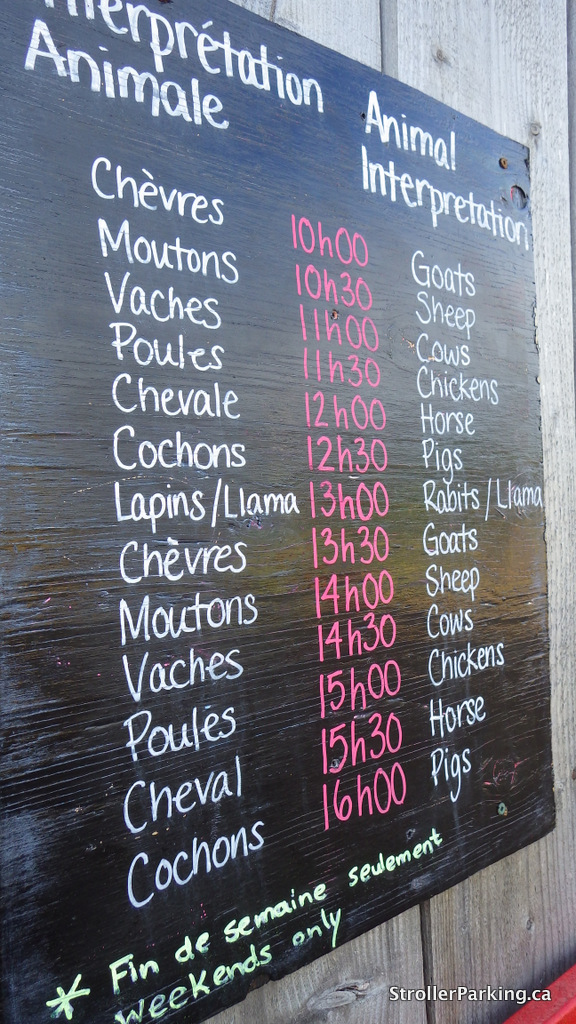 Interprétation Animal
Animale Interpretation
Chèvres 10h00 Goats
Moutons 10h30 Sheep
Vaches 11h00 Cows
Poules 11h30 Chickens
Chevale 12h00 Horse
Cochons 12h30 Pigs
Lapins/Llama 13h00 Rabits/Llama
Chèvres 13h30 Goats
Moutons 14h00 Sheep
Vaches 14h30 Cows
Poules 15h00 Chickens
Cheval 15h30 Horse
Cochons 16h00 Pigs
* Fin de semaine seulement
weekends only
StrollerParking.ca